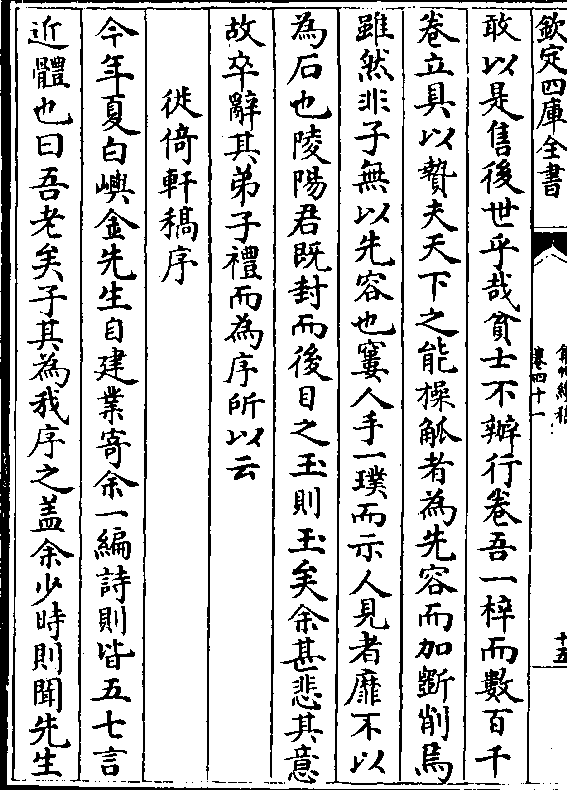 欽定四庫全書
卷四十一
十五
敢以是售後世乎哉貧士不辦行卷吾一梓而數百千
卷立具以贄夫天下之能操觚者為先容而加斵削焉
雖然非子無以先容也窶人手一璞而示人見者靡不以
為石也陵陽君既封而後目之玉則玉矣余甚悲其意
故卒辭其弟子禮而為序所以云
徙倚軒稿序
今年夏白嶼金先生自建業寄余一編詩則皆五七言
近體也曰吾老矣子其為我序之盖余少時則聞先生